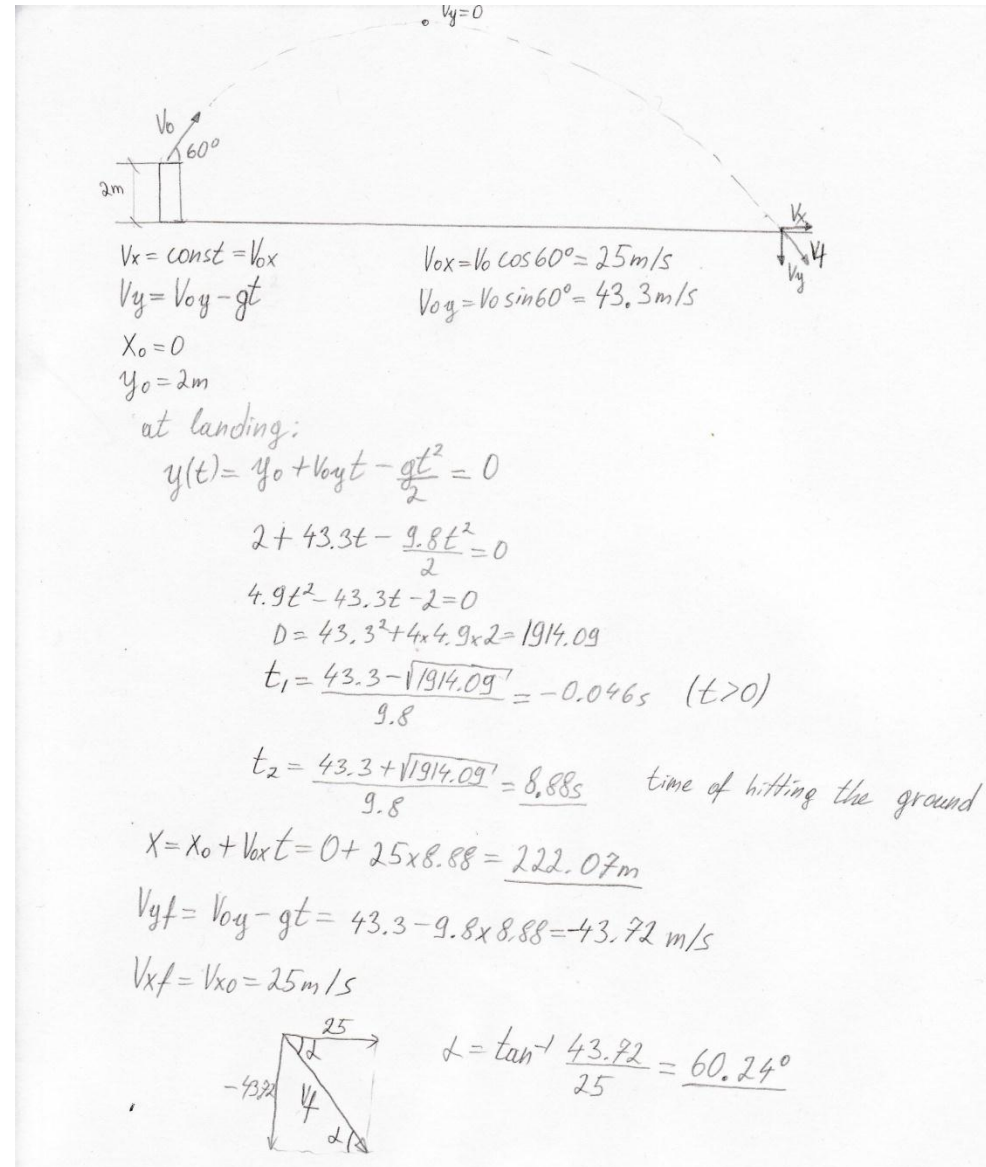 Vy=0
Vo
60°
2m
Vx
Vf
Vy
Vx = const = Vox
Vox = Vo cos60° = 25m/s
Vy = Voy - gt
Voy = Vo sin60° = 43.3m/s
Xo = 0
yo = 2m
at landing:
y(t) = yo + Voyt - gt²/2 = 0
2 + 43.3t - 9.8t²/2 = 0
4.9t² - 43.3t - 2 = 0
D = 43.3² + 4×4.9×2 = 1914.09
t₁ = (43.3 - √1914.09)/9.8 = -0.046s (t>0)
t₂ = (43.3 + √1914.09)/9.8 = 8.88s time of hitting the ground
X = Xo + Voxt = 0 + 25×8.88 = 222.07m
Vyf = Voy - gt = 43.3 - 9.8×8.88 = -43.72 m/s
Vxf = Vxo = 25m/s
25
α
-43.72
Vf
α
α = tan⁻¹ 43.72/25 = 60.24°